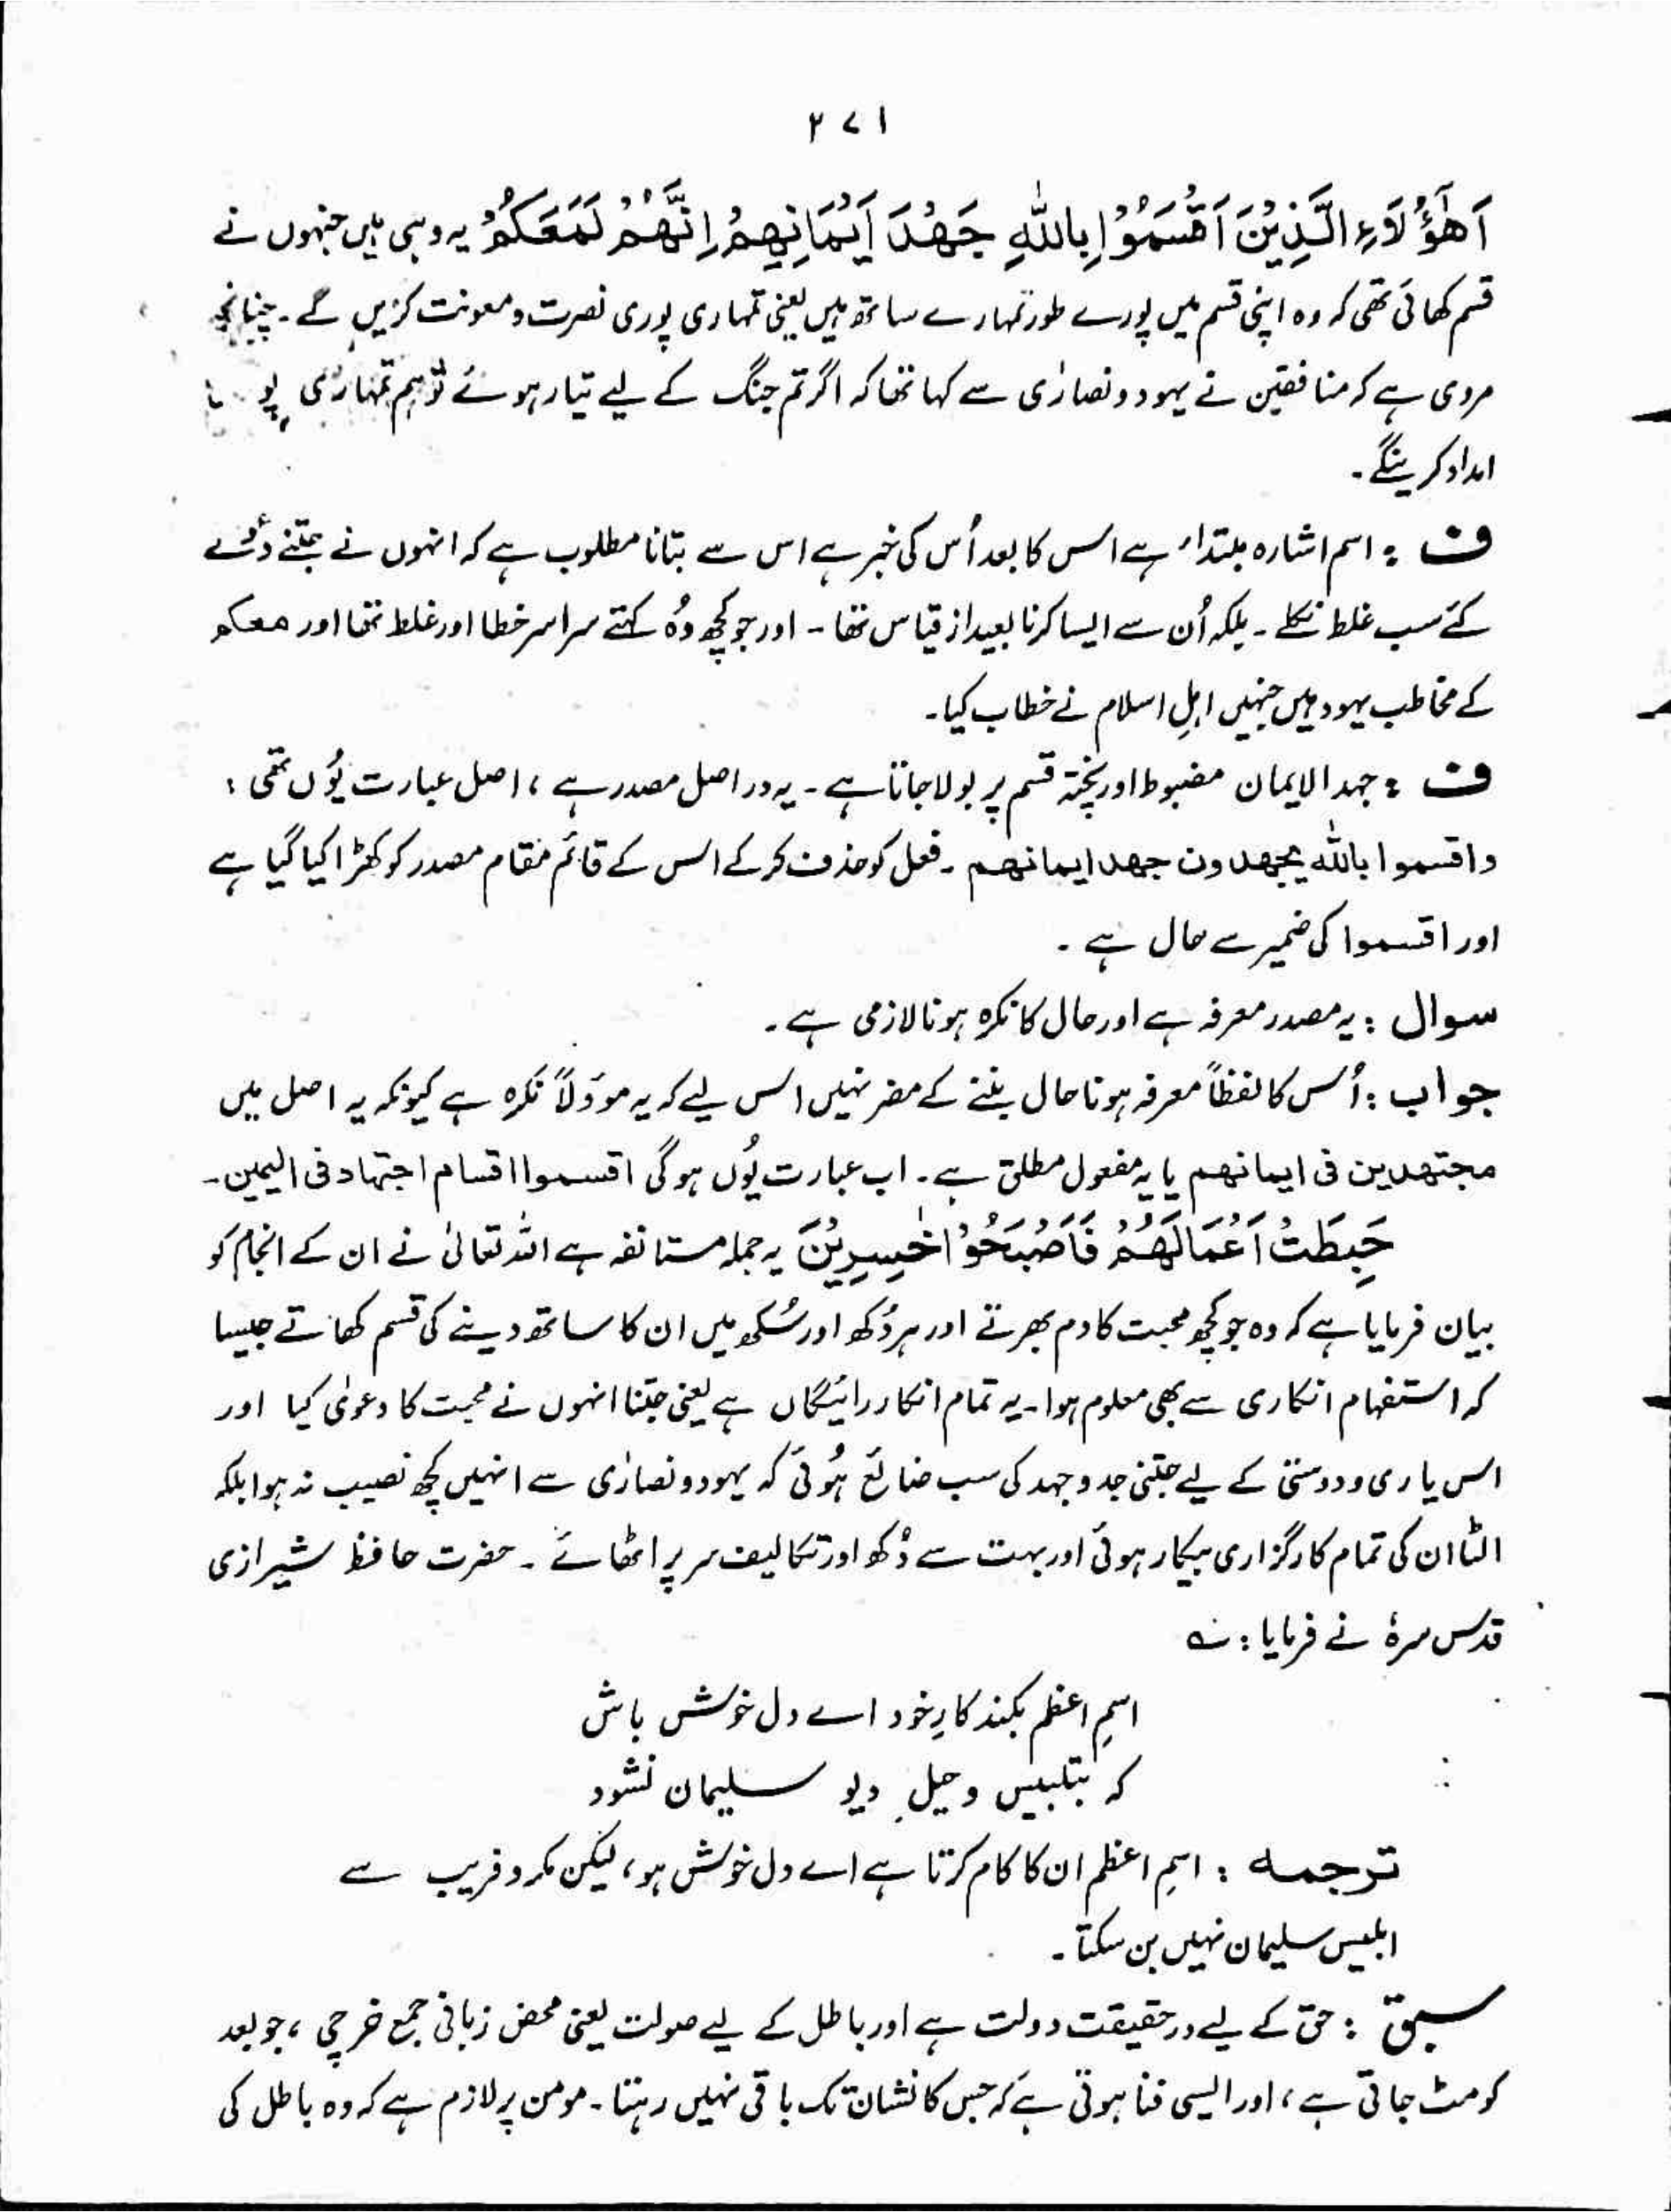 ۲۷۱
اَهٰٓؤُلَآءِ الَّذِيْنَ اَقْسَمُوْا بِاللّٰهِ جَهْدَ اَيْمَانِهِمْ اِنَّهُمْ لَمَعَكُمْ یہ وہی ہیں جنہوں نے
قسم کھائی تھی کہ وہ اپنی قسم میں پورے طور تمہارے ساتھ ہیں یعنی تمہاری پوری نصرت و معونت کریں گے ۔ چنانچہ
مروی ہے کہ منافقین نے یہود و نصارٰی سے کہا تھا کہ اگر تم جنگ کے لیے تیار ہوئے تو ہم تمہاری
امداد کرینگے ۔
ف : اسم اشارہ مبتداء ہے اس کا بعد اُس کی خبر ہے اس سے بتانا مطلوب ہے کہ انہوں نے جتنے دعوے
کئے سب غلط نکلے ۔ بلکہ اُن سے ایسا کرنا بعید از قیاس تھا ۔ اور جو کچھ وُہ کہتے سراسر خطا اور غلط تھا اور معکم
کے مخاطب یہود ہیں جنہیں اہلِ اسلام نے خطاب کیا ۔
ف : جہد الایمان مضبوط اور پختہ قسم پر بولا جاتا ہے ۔ یہ در اصل مصدر ہے ، اصل عبارت یُوں تھی :
واقسموا باللّٰه یجھدون جھد ایمانھم ۔ فعل کو حذف کر کے اس کے قائم مقام مصدر کو کھڑا کیا گیا ہے
اور اقسموا کی ضمیر سے حال ہے ۔
سوال : یہ مصدر معرفہ ہے اور حال کا نکرہ ہونا لازمی ہے ۔
جواب : اُس کا لفظاً معرفہ ہونا حال بننے کے مضر نہیں اس لیے کہ یہ موَولاً نکرہ ہے کیونکہ یہ اصل میں
مجتھدین فی ایمانھم یا یہ مفعول مطلق ہے ۔ اب عبارت یُوں ہوگی اقسموا اقسام اجتہاد فی الیمین ۔
حَبِطَتْ اَعْمَالُهُمْ فَاَصْبَحُوْا خٰسِرِيْنَ یہ جملہ مستانفہ ہے اللہ تعالیٰ نے ان کے انجام کو
بیان فرمایا ہے کہ وہ جو کچھ محبت کا دم بھرتے اور ہر دُکھ اور سُکھ میں ان کا ساتھ دینے کی قسم کھاتے جیسا
کہ استفہام انکاری سے بھی معلوم ہوا ۔ یہ تمام انکار رائیگاں ہے یعنی جتنا انہوں نے محبت کا دعویٰ کیا اور
اس یاری و دوستی کے لیے جتنی جد و جہد کی سب ضائع ہُوئی کہ یہود و نصارٰی سے انہیں کچھ نصیب نہ ہوا بلکہ
الٹا ان کی تمام کارگزاری بیکار ہوئی اور بہت سے دُکھ اور تکالیف سر پر اٹھائے ۔ حضرت حافظ شیرازی
قدس سرہٗ نے فرمایا : ؎
اسمِ اعظم بکند کارِ خود اے دل خوش باش
کہ بتلبیس و حیل دیو سلیمان نشود
ترجمہ : اسمِ اعظم ان کا کام کرتا ہے اے دل خوش ہو ، لیکن مکر و فریب سے
ابلیس سلیمان نہیں بن سکتا ۔
سبق : حق کے لیے درحقیقت دولت ہے اور باطل کے لیے صولت یعنی محض زبانی جمع خرچی ، جو بعد
کو مٹ جاتی ہے ، اور ایسی فنا ہوتی ہے کہ جس کا نشان تک باقی نہیں رہتا ۔ مومن پر لازم ہے کہ وہ باطل کی